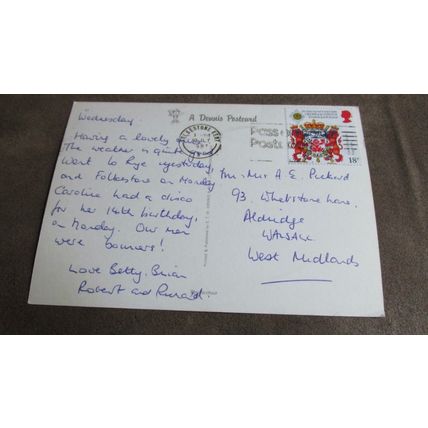 Wednesday.
A Dennis Postcard
Having a lovely
The weather is quite
Went to Rye yesterday,
and Folkestone on Monday
Caroline had a disco
for her 14th birthday,
on Monday. Our men
were bouncers!
Love Betty, Brian
Robert and Richard.
FOLKESTONE KENT
Pass
Posts
18P
Mr. Mrs A E. Pickard
93. Whetstone Lane.
Aldridge
WALSALL
West Midlands